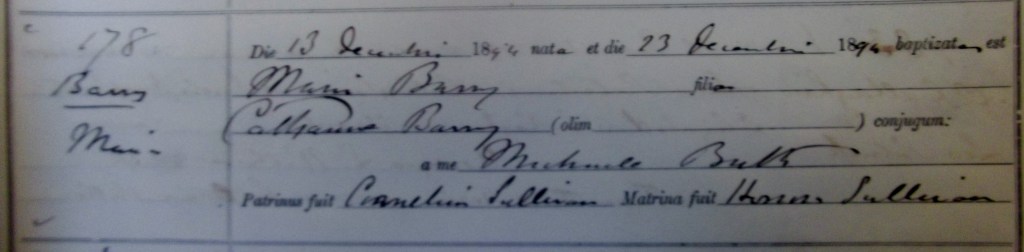 178
Barry
Maria
Die 13 Decembris 1894 nata et die 23 Decembris 1894 baptizata est
Maria Barry filia
Catharinae Barry (olim ) conjugum:
a me Michaele
Patrinus fuit Cornelius Sullivan Matrina fuit Honora Sullivan